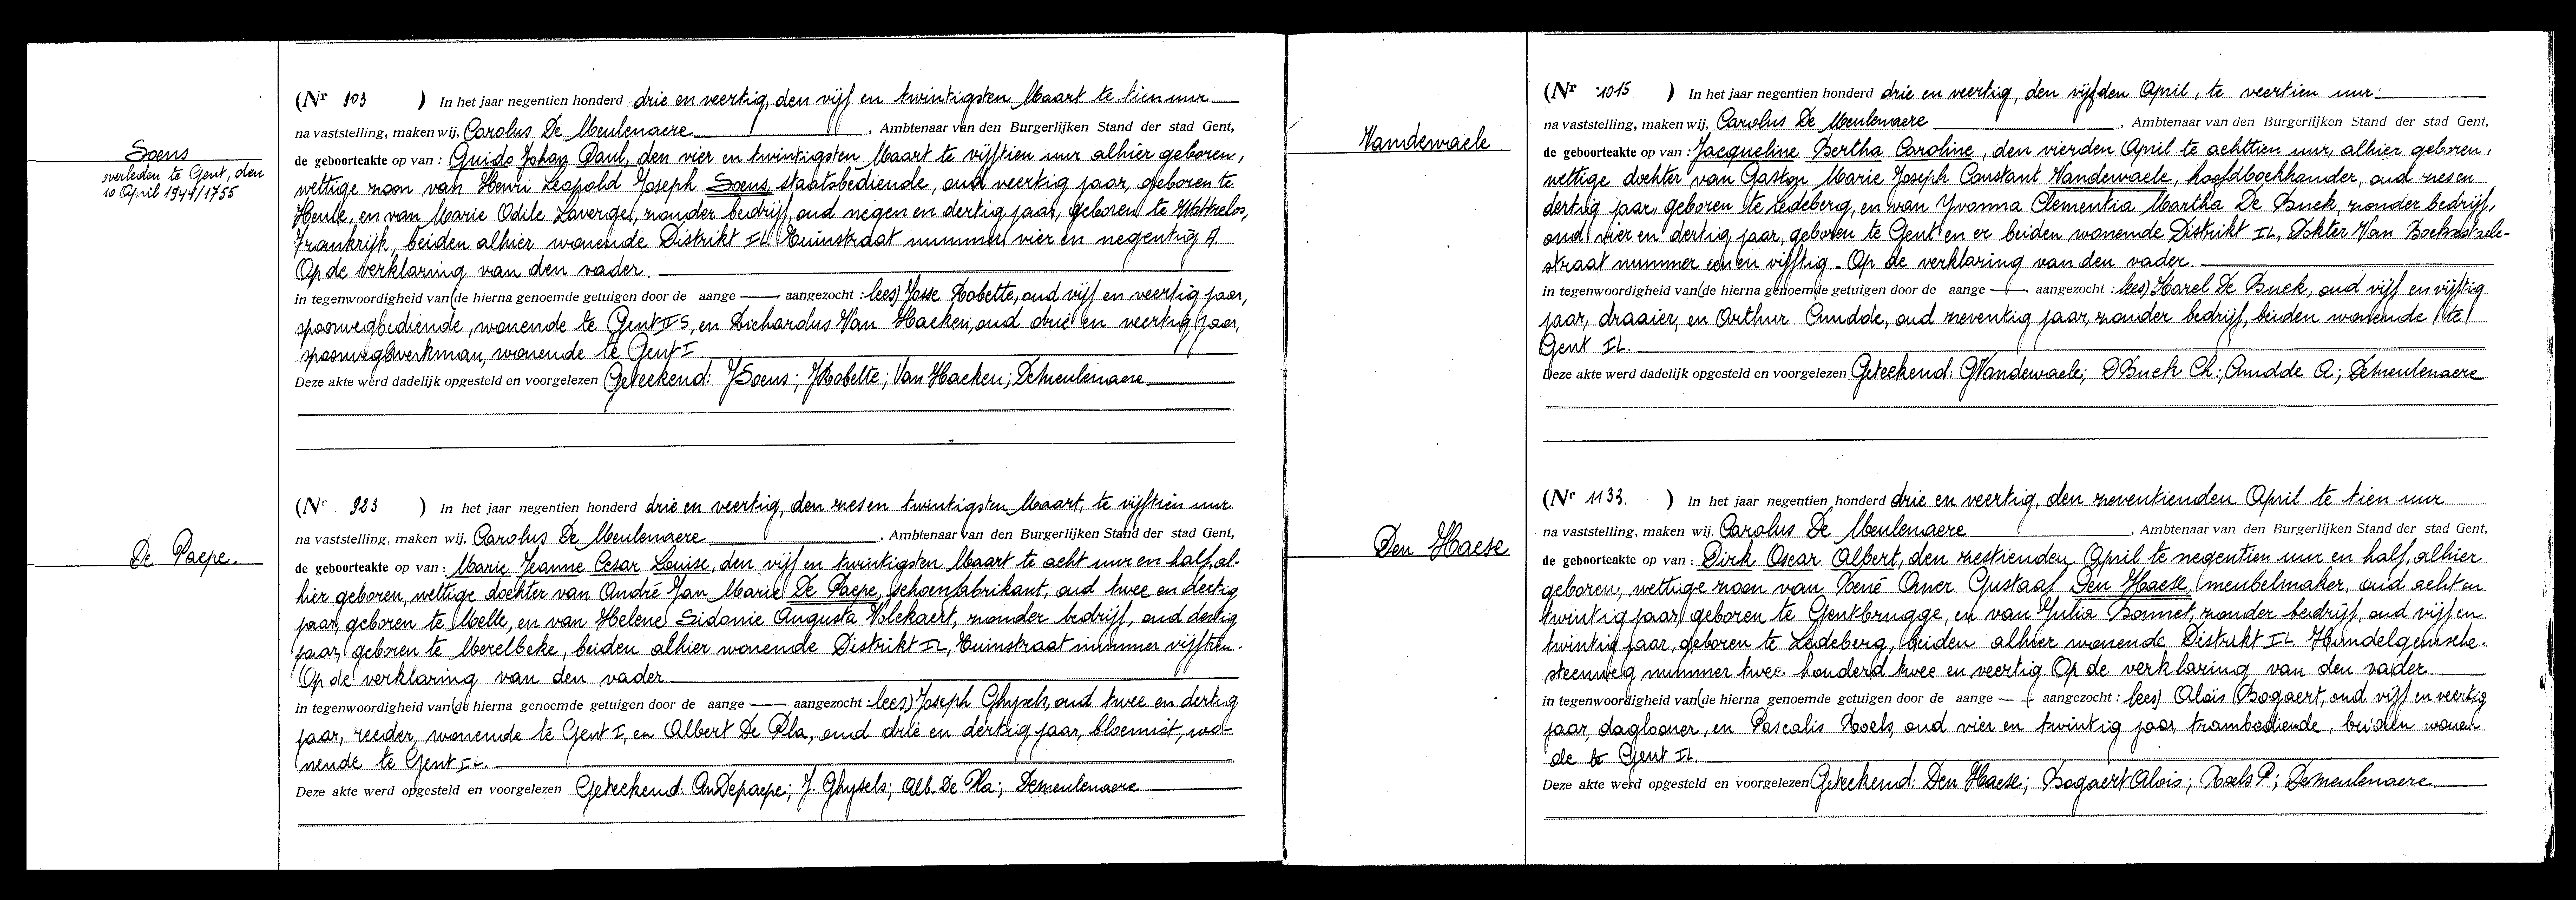 Soens
overleden te Gent, den
10 April 1944/1755
(Nr 903 ) In het jaar negentien honderd drie en veertig, den vijf en twintigsten Maart te tien uur
na vaststelling, maken wij, Carolus De Meulenaere , Ambtenaar van den Burgerlijken Stand der stad Gent,
de geboorteakte op van : Guido Johan Paul, den vier en twintigsten Maart te vijftien uur alhier geboren,
wettige zoon van Henri Leopold Joseph Soens, staatsbediende, oud veertig jaar, geboren te
Heule, en van Marie Odile Laverge, zonder bedrijf, oud negen en dertig jaar, geboren te Wattrelos,
Frankrijk, beiden alhier wonende Distrikt IL Tuinstraat nummer vier en negentig A
Op de verklaring van den vader.
in tegenwoordigheid van (de hierna genoemde getuigen door de aange — aangezocht : lees) Josse Robette, oud vijf en veertig jaar,
spoorwegbediende, wonende te Gent IS, en Richardus Van Haeken, oud drie en veertig jaar,
spoorwegwerkman, wonende te Gent I.
Deze akte werd dadelijk opgesteld en voorgelezen Geteekend: JSoens; JRobette; Van Haeken; Demeulenaere
De Paepe.
(Nr 923 ) In het jaar negentien honderd drie en veertig, den zes en twintigsten Maart, te vijftien uur
na vaststelling, maken wij, Carolus De Meulenaere , Ambtenaar van den Burgerlijken Stand der stad Gent,
de geboorteakte op van : Marie Jeanne Cesar Louise, den vijf en twintigsten Maart te acht uur en half, al-
hier geboren, wettige dochter van André Jan Marie De Paepe, schoenfabrikant, oud twee en dertig
jaar, geboren te Melle, en van Helene Sidonie Augusta Volckaert, zonder bedrijf, oud dertig
jaar, geboren te Merelbeke, beiden alhier wonende Distrikt IL, Tuinstraat nummer vijftien.
Op de verklaring van den vader.
in tegenwoordigheid van (de hierna genoemde getuigen door de aange — aangezocht : lees) Joseph Ghysels, oud twee en dertig
jaar, reeder, wonende te Gent I, en Albert De Pla, oud drie en dertig jaar, bloemist, wo-
nende te Gent IL.
Deze akte werd opgesteld en voorgelezen Geteekend: AnDepaepe; J. Ghysels; Alb. De Pla; Demeulenaere
Vandewaele
(Nr 1015 ) In het jaar negentien honderd drie en veertig, den vijfden April, te veertien uur.
na vaststelling, maken wij, Carolus De Meulenaere , Ambtenaar van den Burgerlijken Stand der stad Gent,
de geboorteakte op van : Jacqueline Bertha Caroline, den vierden April te achttien uur, alhier geboren,
wettige dochter van Gaston Marie Joseph Constant Vandewaele, hoofdboekhouder, oud zes en
dertig jaar, geboren te Ledeberg, en van Yvonna Clementia Martha De Buck, zonder bedrijf,
oud vier en dertig jaar, geboren te Gent en er beiden wonende Distrikt IL, Dokter Van Bockxstaele-
straat nummer een en vijftig. Op de verklaring van den vader.
in tegenwoordigheid van (de hierna genoemde getuigen door de aange — aangezocht : lees) Karel De Buck, oud vijf en vijftig
jaar, draaier, en Arthur Cnudde, oud zeventig jaar, zonder bedrijf, beiden wonende te
Gent IL.
Deze akte werd dadelijk opgesteld en voorgelezen Geteekend: GVandewaele; DBuck Ch.; Cnudde A.; Demeulenaere
Den Haese
(Nr 1133. ) In het jaar negentien honderd drie en veertig, den zeventienden April te tien uur
na vaststelling, maken wij, Carolus De Meulenaere , Ambtenaar van den Burgerlijken Stand der stad Gent,
de geboorteakte op van : Dirk Oscar Albert, den zestienden April te negentien uur en half, alhier
geboren, wettige zoon van René Omer Gustaaf Den Haese, meubelmaker, oud acht en
twintig jaar, geboren te Gentbrugge, en van Julia Bonnet, zonder bedrijf, oud vijf en
twintig jaar, geboren te Ledeberg, beiden alhier wonende Distrikt IL Hundelgemsche-
steenweg nummer twee honderd twee en veertig Op de verklaring van den vader.
in tegenwoordigheid van (de hierna genoemde getuigen door de aange — aangezocht : lees) Alois Bogaert, oud vijf en veertig
jaar, daglooner, en Pascalis Roels, oud vier en twintig jaar, trambediende, beiden wonen
de te Gent IL.
Deze akte werd opgesteld en voorgelezen Geteekend: Den Haese; Bogaert Alois; Roels P; Demeulenaere